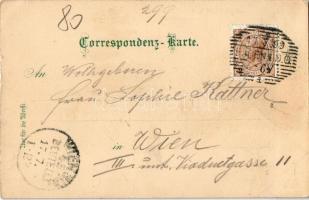 80
299
Correspondenz-Karte.
An Wohlgeboren
Frau Sophie Kattner
in Wien
III unt. Viaductgasse 11